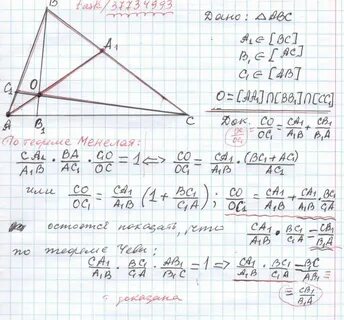 task/37734993
B
A₁
C₁
O
A
B₁
C
Дано: △ABC
A₁ ∈ [BC]
B₁ ∈ [AC]
C₁ ∈ [AB]
O = [AA₁] ∩ [BB₁] ∩ [CC₁]
Док. CO/OC₁ = CA₁/A₁B + CB₁/B₁A
По теореме Менелая:
CA₁/A₁B · BA/AC₁ · C₁O/OC = 1 ⇔ CO/OC₁ = CA₁/A₁B · (BC₁ + AC₁)/AC₁
или CO/OC₁ = CA₁/A₁B (1 + BC₁/C₁A) ; CO/OC₁ = CA₁/A₁B + CA₁/A₁B · BC₁/C₁A
остается показать, что CA₁/A₁B · BC₁/C₁A = CB₁/B₁A
по теореме Чевы:
CA₁/A₁B · BC₁/C₁A · AB₁/B₁C = 1 ⇒ CA₁/A₁B · BC₁/C₁A = B₁C/AB₁ =
= CB₁/B₁A
доказана